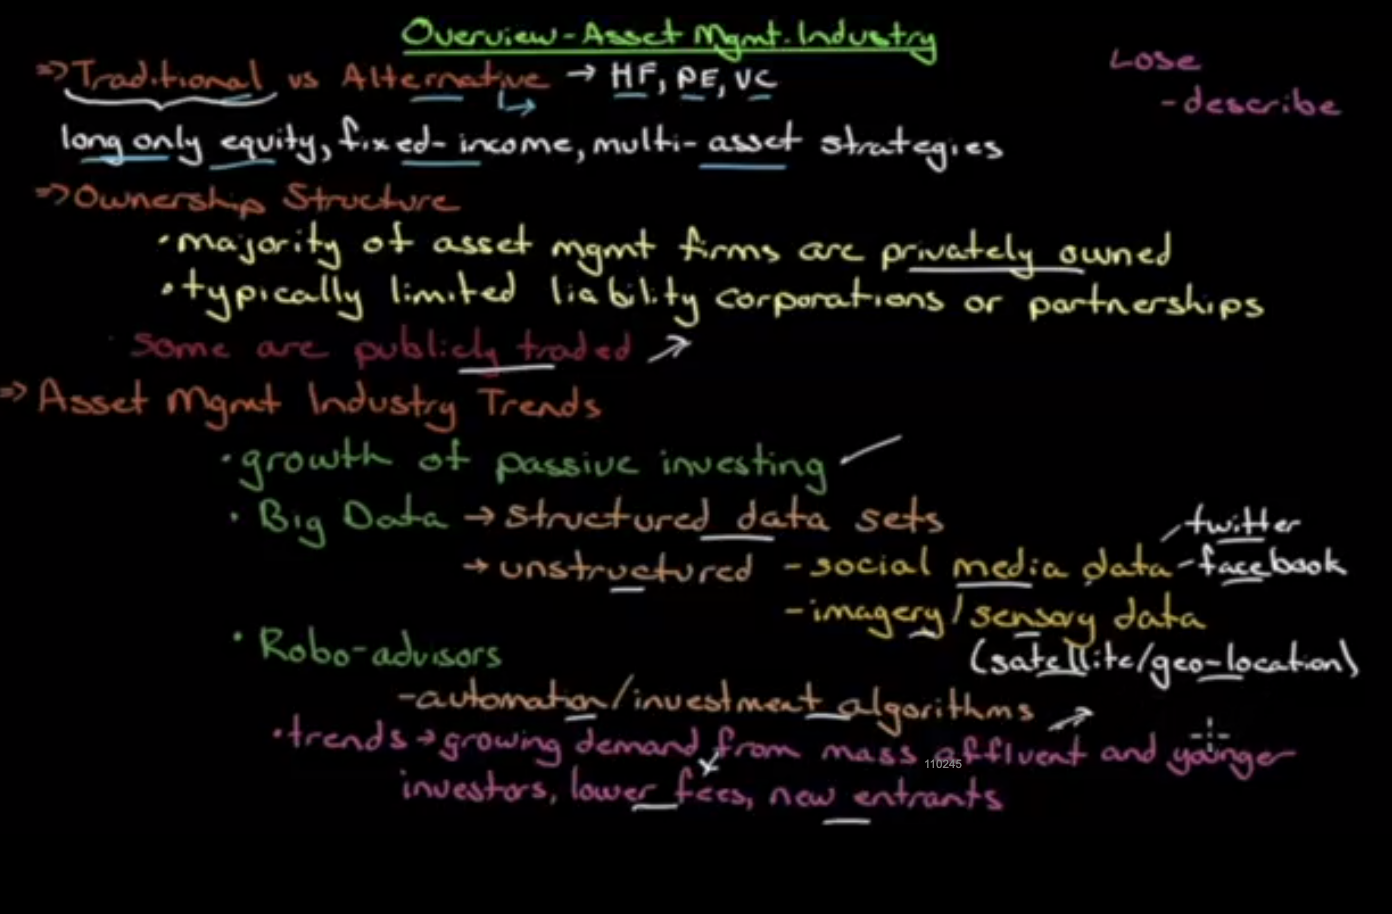 Overview-Asset Mgmt. Industry
LOSE
-describe
⇒Traditional vs Alternative → HF, PE, VC
long only equity, fixed-income, multi-asset strategies
⇒Ownership Structure
•majority of asset mgmt firms are privately owned
•typically limited liability corporations or partnerships
some are publicly traded
⇒ Asset Mgmt Industry Trends
•growth of passive investing
• Big Data → structured data sets
→ unstructured - social media data - twitter
- facebook
- imagery/sensory data
(satellite/geo-location)
• Robo-advisors
-automation/investment algorithms
•trends → growing demand from mass affluent and younger
110245
investors, lower fees, new entrants